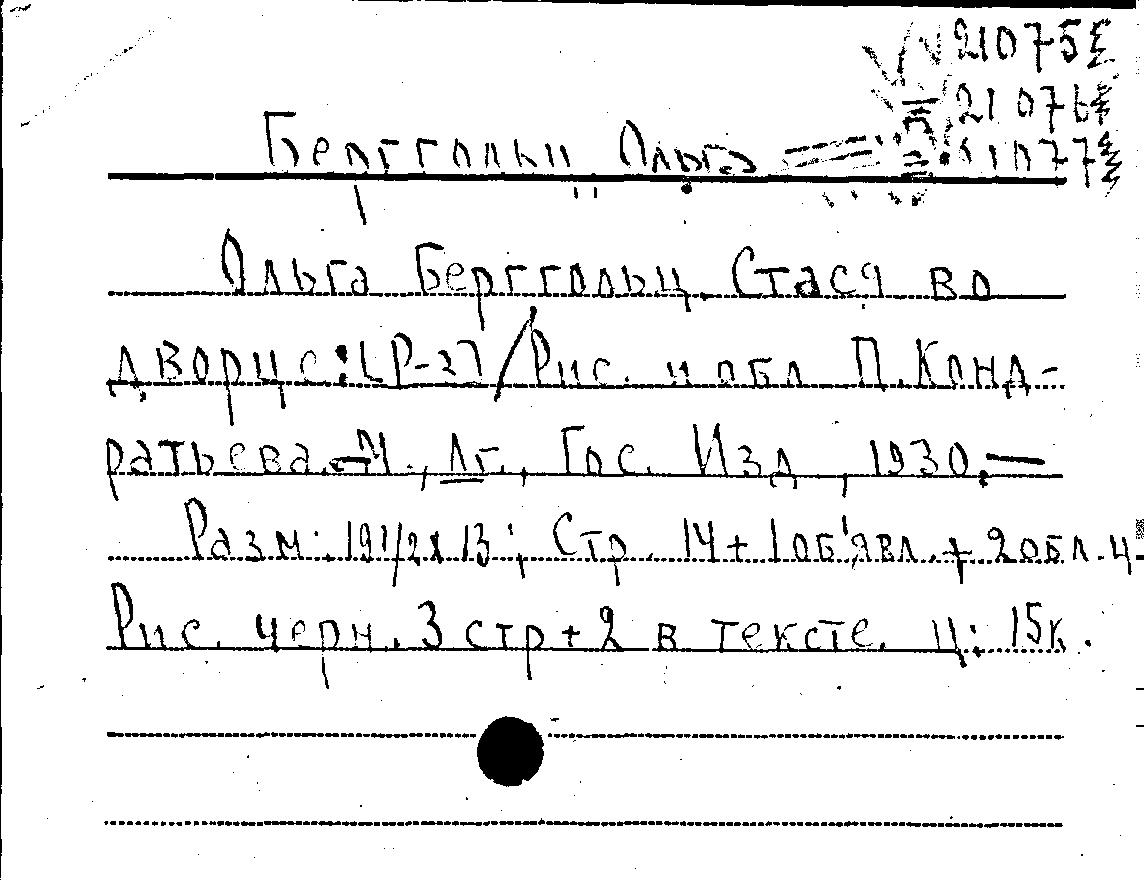 21075
21076
Берггольц Ольга 1077
Ольга Берггольц. Стася во
дворце: [P-27/Рис. и обл П. Конд-
ратьева.-М., Лг., Гос. Изд, 1930.—
Разм: 19 1/2 x 13; Стр. 14 + 1 об'явл. + 2 обл. ц-
Рис. черн. 3 стр + 2 в тексте. Ц: 15к.